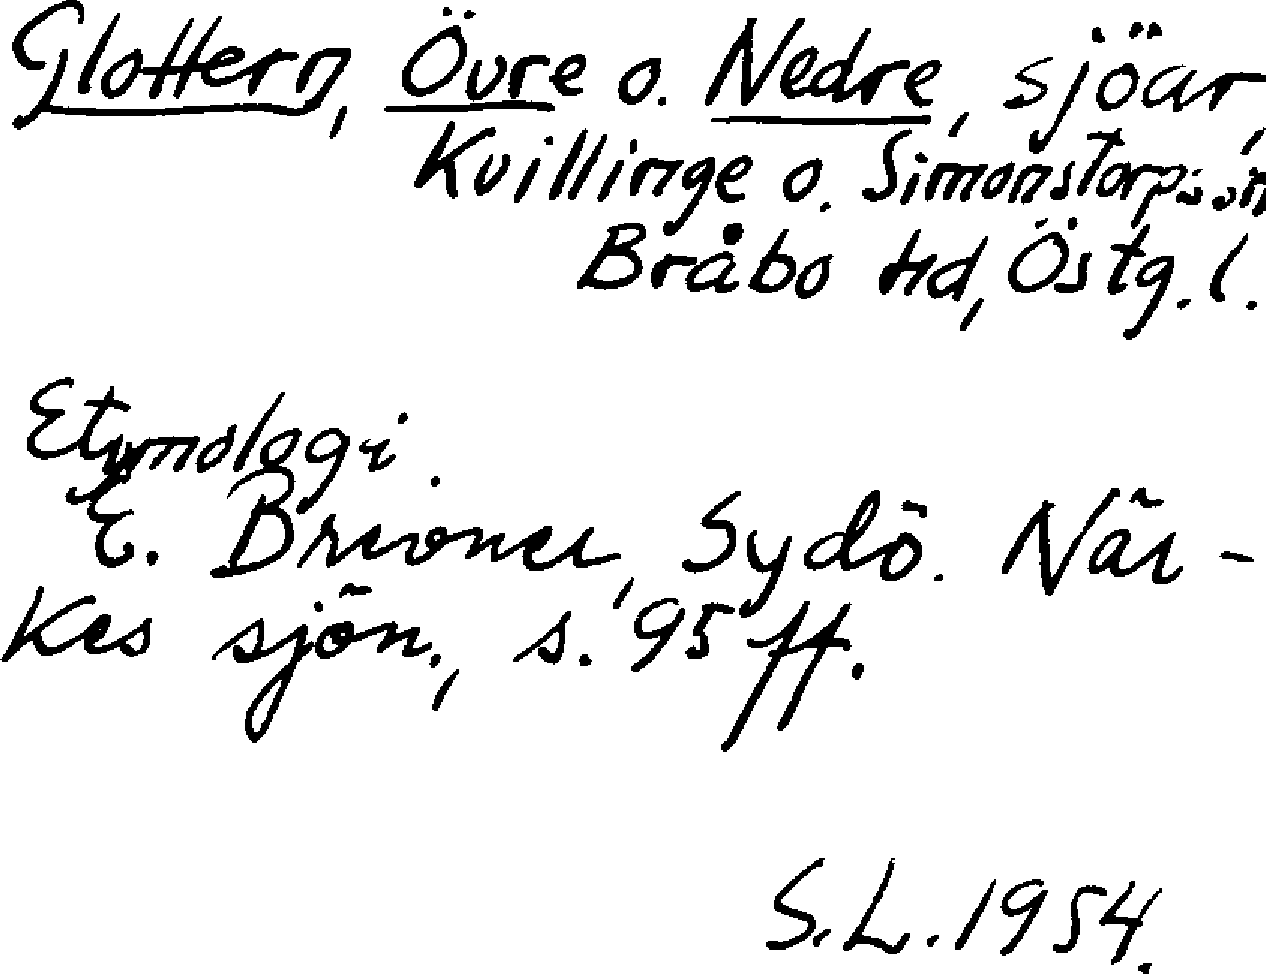 Glottern, Övre o. Nedre, sjöar,
Kvillinge o. Simonstorps sn
Bråbo hd, Östg. l.
Etymologi.
E. Brevner, Sydö. När-
kes sjön., s. 95 ff.
S.L. 1954.